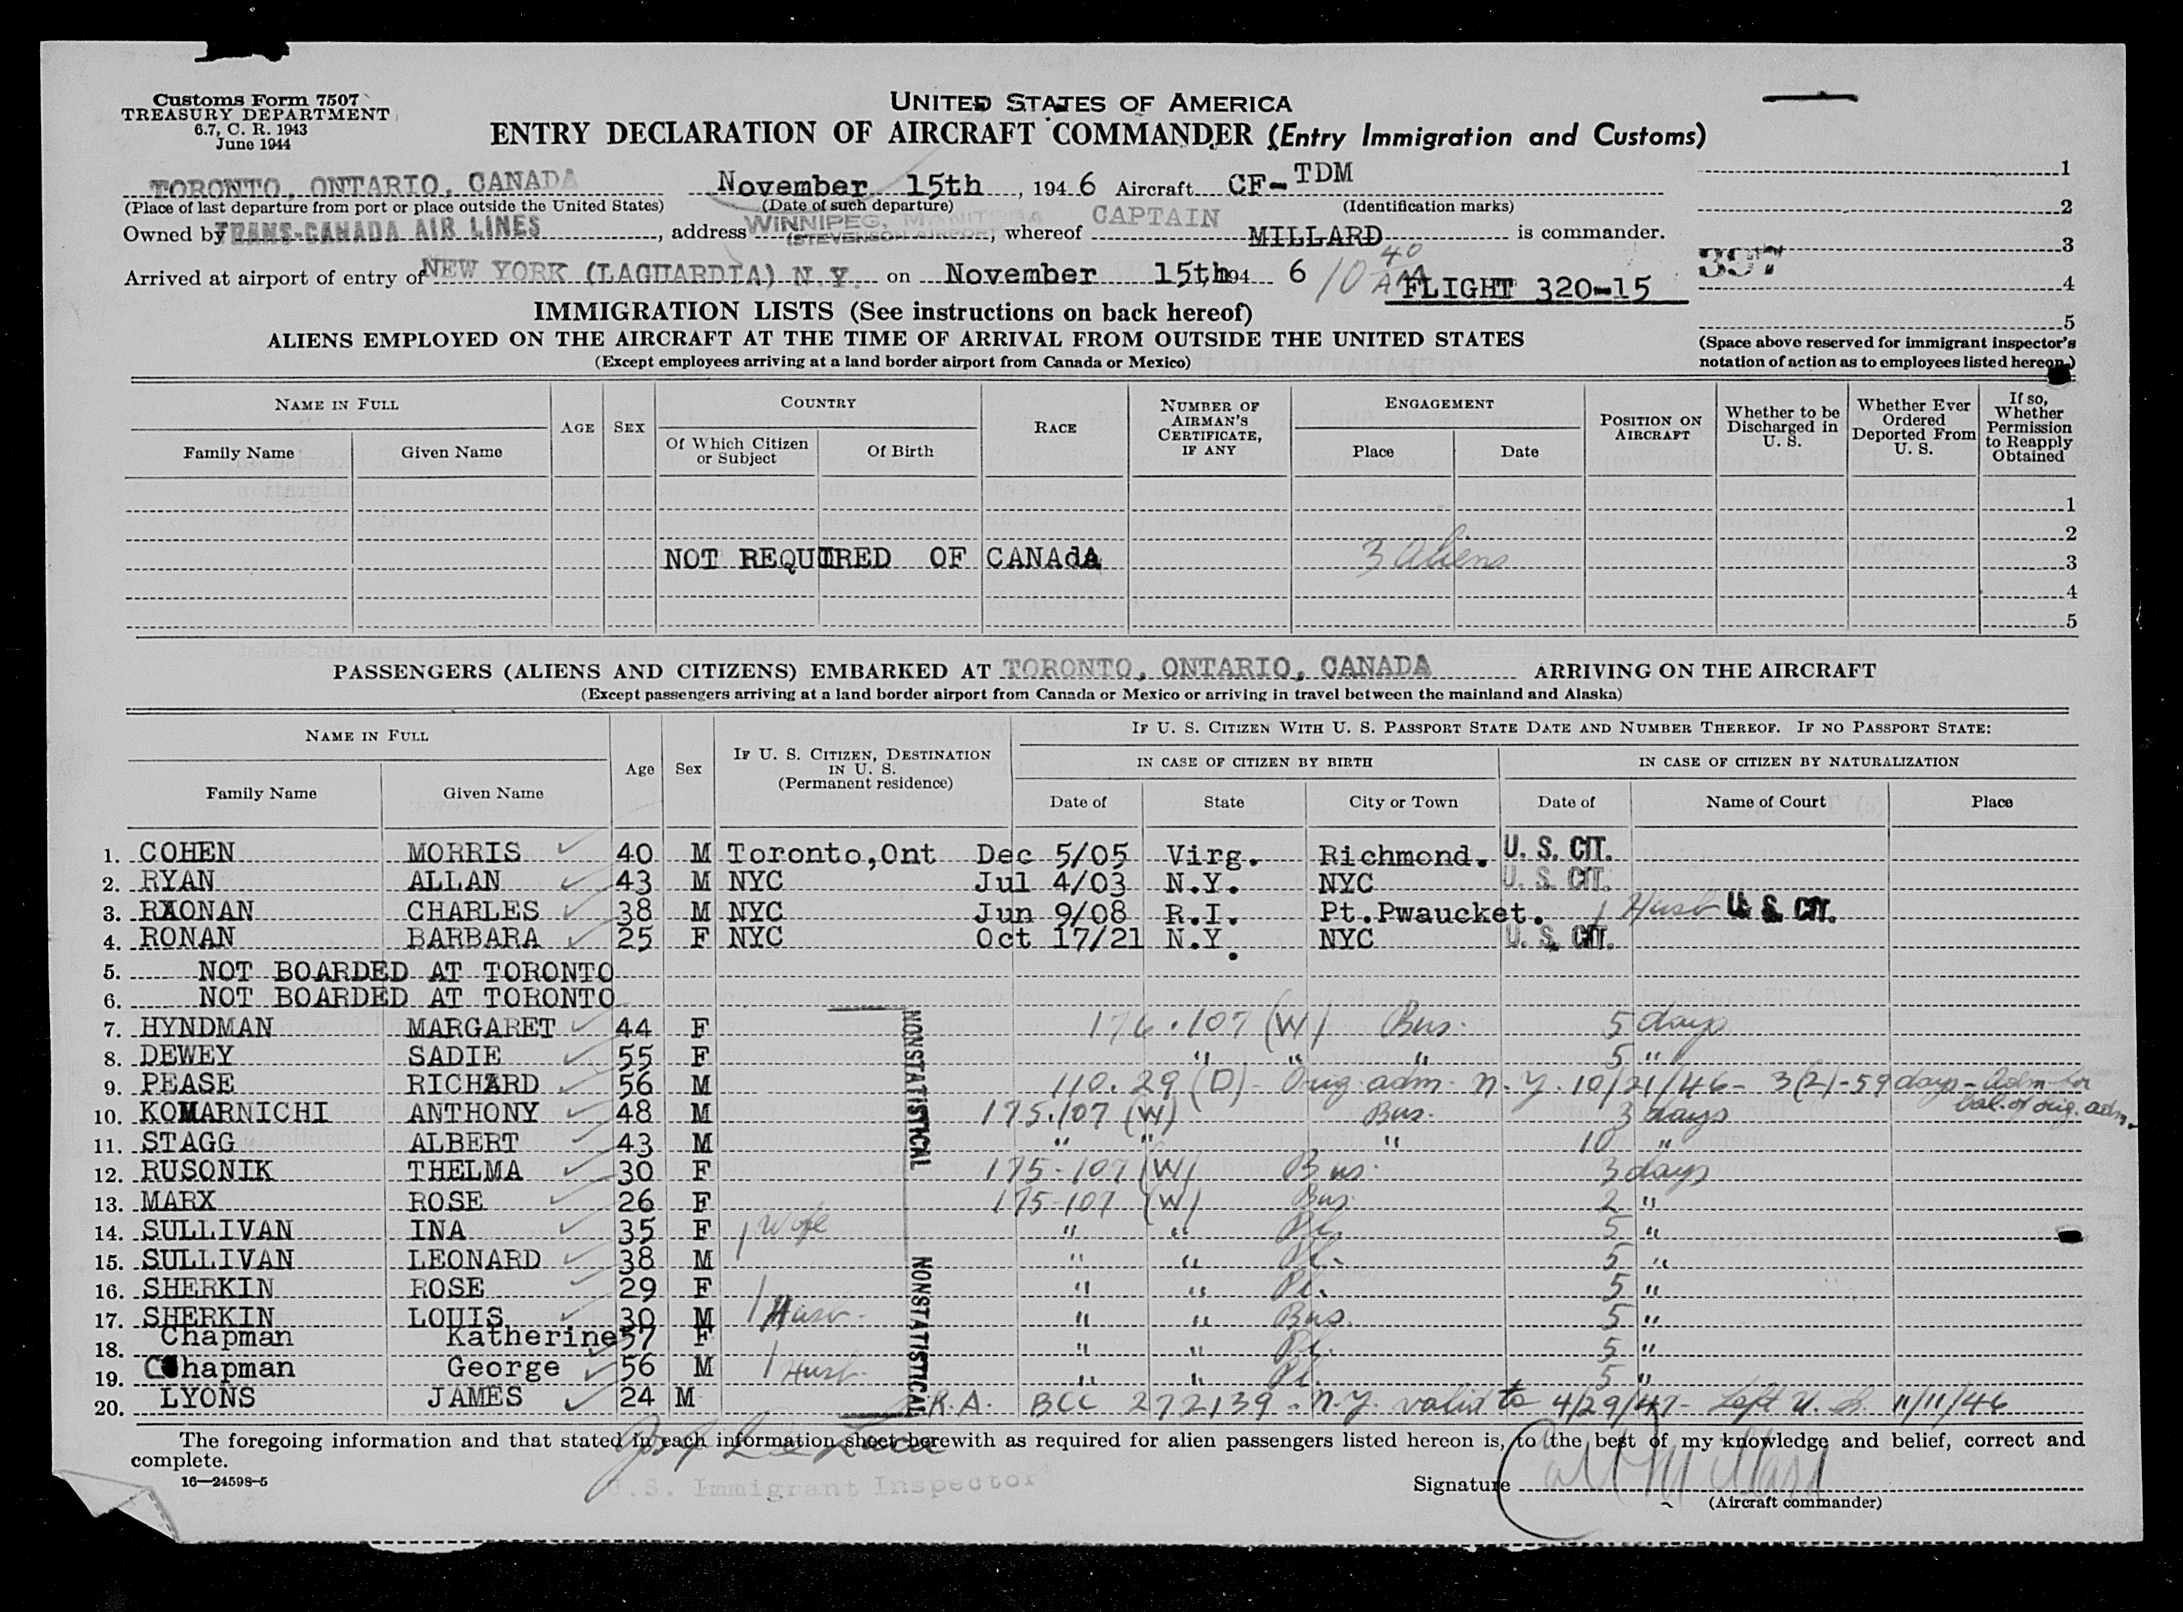 Customs Form 7507
TREASURY DEPARTMENT
6.7, C. R. 1943
June 1944
UNITED STATES OF AMERICA
ENTRY DECLARATION OF AIRCRAFT COMMANDER (Entry Immigration and Customs)
TORONTO, ONTARIO, CANADA November 15th, 1946 Aircraft CF-TDM 1
(Place of last departure from port or place outside the United States) (Date of such departure) (Identification marks) 2
Owned by TRANS-CANADA AIR LINES, address WINNIPEG, MANITOBA (STEVENSON AIRPORT), whereof CAPTAIN MILLARD is commander. 3
Arrived at airport of entry of NEW YORK (LAGUARDIA) N.Y. on November 15th 194 6 10 40 AM FLIGHT 320-15 397 4
5
IMMIGRATION LISTS (See instructions on back hereof)
ALIENS EMPLOYED ON THE AIRCRAFT AT THE TIME OF ARRIVAL FROM OUTSIDE THE UNITED STATES
(Except employees arriving at a land border airport from Canada or Mexico)
(Space above reserved for immigrant inspector's
notation of action as to employees listed hereon.)
NAME IN FULL
Family Name Given Name
AGE SEX
COUNTRY
Of Which Citizen or Subject Of Birth
RACE
NUMBER OF AIRMAN'S CERTIFICATE, IF ANY
ENGAGEMENT
Place Date
POSITION ON AIRCRAFT
Whether to be Discharged in U. S.
Whether Ever Ordered Deported From U. S.
If so, Whether Permission to Reapply Obtained
1
2
NOT REQUIRED OF CANAdA 3 aliens 3
4
5
PASSENGERS (ALIENS AND CITIZENS) EMBARKED AT TORONTO, ONTARIO, CANADA ARRIVING ON THE AIRCRAFT
(Except passengers arriving at a land border airport from Canada or Mexico or arriving in travel between the mainland and Alaska)
NAME IN FULL
Family Name Given Name
Age Sex
IF U. S. CITIZEN, DESTINATION IN U. S.
(Permanent residence)
IF U. S. CITIZEN WITH U. S. PASSPORT STATE DATE AND NUMBER THEREOF. IF NO PASSPORT STATE:
IN CASE OF CITIZEN BY BIRTH IN CASE OF CITIZEN BY NATURALIZATION
Date of State City or Town Date of Name of Court Place
1. COHEN MORRIS 40 M Toronto,Ont Dec 5/05 Virg. Richmond. U. S. CIT.
2. RYAN ALLAN 43 M NYC Jul 4/03 N.Y. NYC U. S. CIT.
3. RXONAN CHARLES 38 M NYC Jun 9/08 R.I. Pt.Pwaucket. Husb U. S. CIT.
4. RONAN BARBARA 25 F NYC Oct 17/21 N.Y. NYC U. S. CIT.
5. NOT BOARDED AT TORONTO
6. NOT BOARDED AT TORONTO
7. HYNDMAN MARGARET 44 F 176.107 (W) Bus. 5 days
8. DEWEY SADIE 55 F " " " 5 "
9. PEASE RICHARD 56 M 110.29 (D) - Orig. adm. N.Y. 10/21/46 - 3(2) - 59 days - Adm for bal. of orig. adm.
10. KOMARNICHI ANTHONY 48 M 175.107 (W) Bus. 3 days
11. STAGG ALBERT 43 M " " " 10 "
12. RUSONIK THELMA 30 F 175-107 (W) Bus. 3 days
13. MARX ROSE 26 F 175-107 (W) Bus. 2 "
14. SULLIVAN INA 35 F Wife " " Pl. 5 "
15. SULLIVAN LEONARD 38 M " " Pl. 5 "
16. SHERKIN ROSE 29 F " " Pl. 5 "
17. SHERKIN LOUIS 30 M Husb. " " Bus. 5 "
18. Chapman Katherine 57 F " " Pl. 5 "
19. Chapman George 56 M Husb. " " Pl. 5 "
20. LYONS JAMES 24 M R.A. BCC 272139 - N.Y. valid to 4/29/47 - Left U.S. 11/11/46
NONSTATISTICAL
NONSTATISTICAL
The foregoing information and that stated in each information sheet herewith as required for alien passengers listed hereon is, to the best of my knowledge and belief, correct and
complete.
16—24598-5
U.S. Immigrant Inspector
Signature
(Aircraft commander)